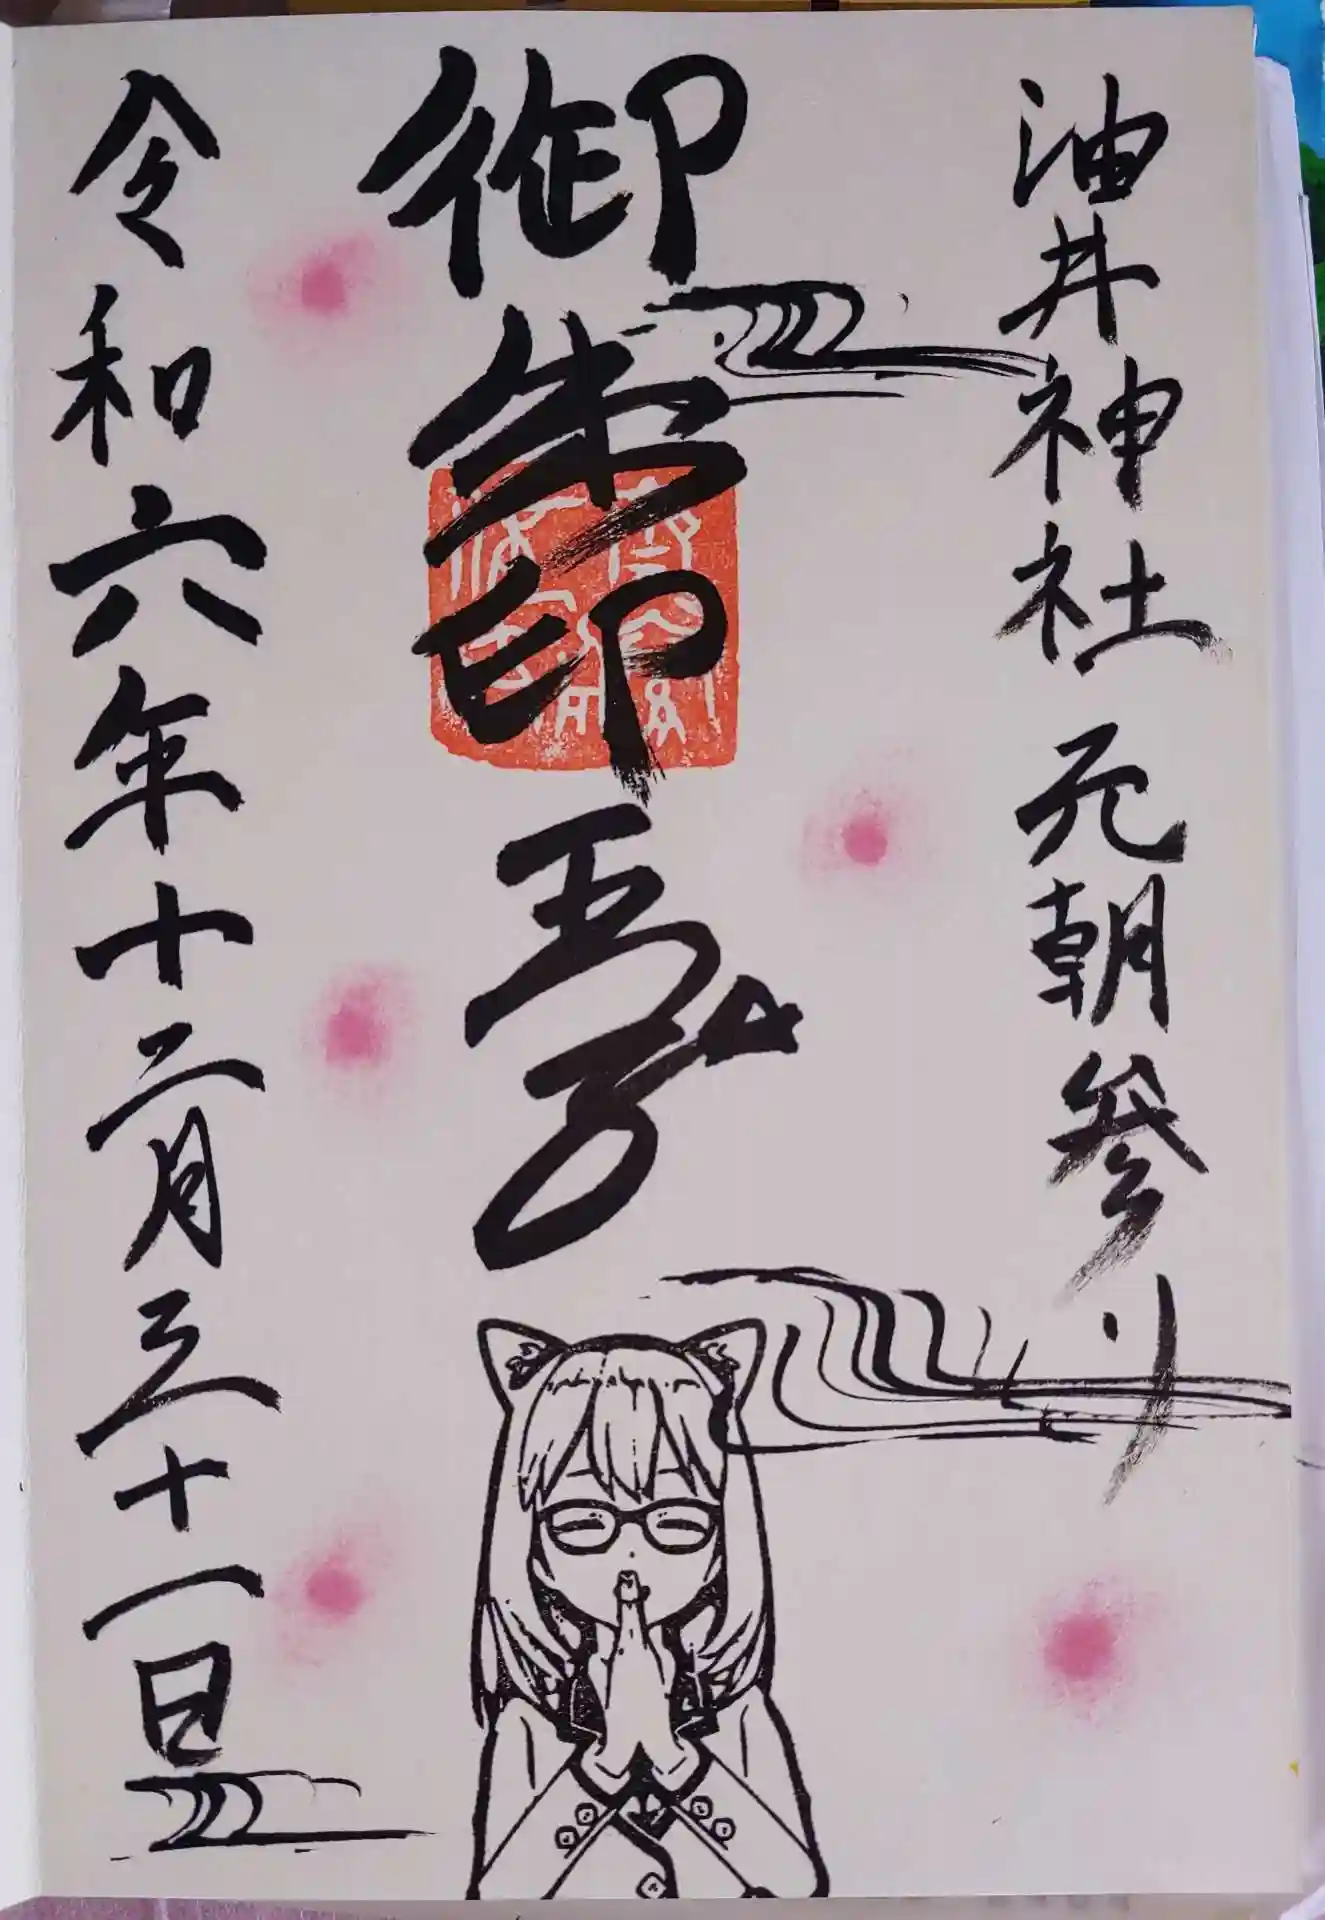 油井神社元朝參り
御朱印
令和六年十二月三十一日